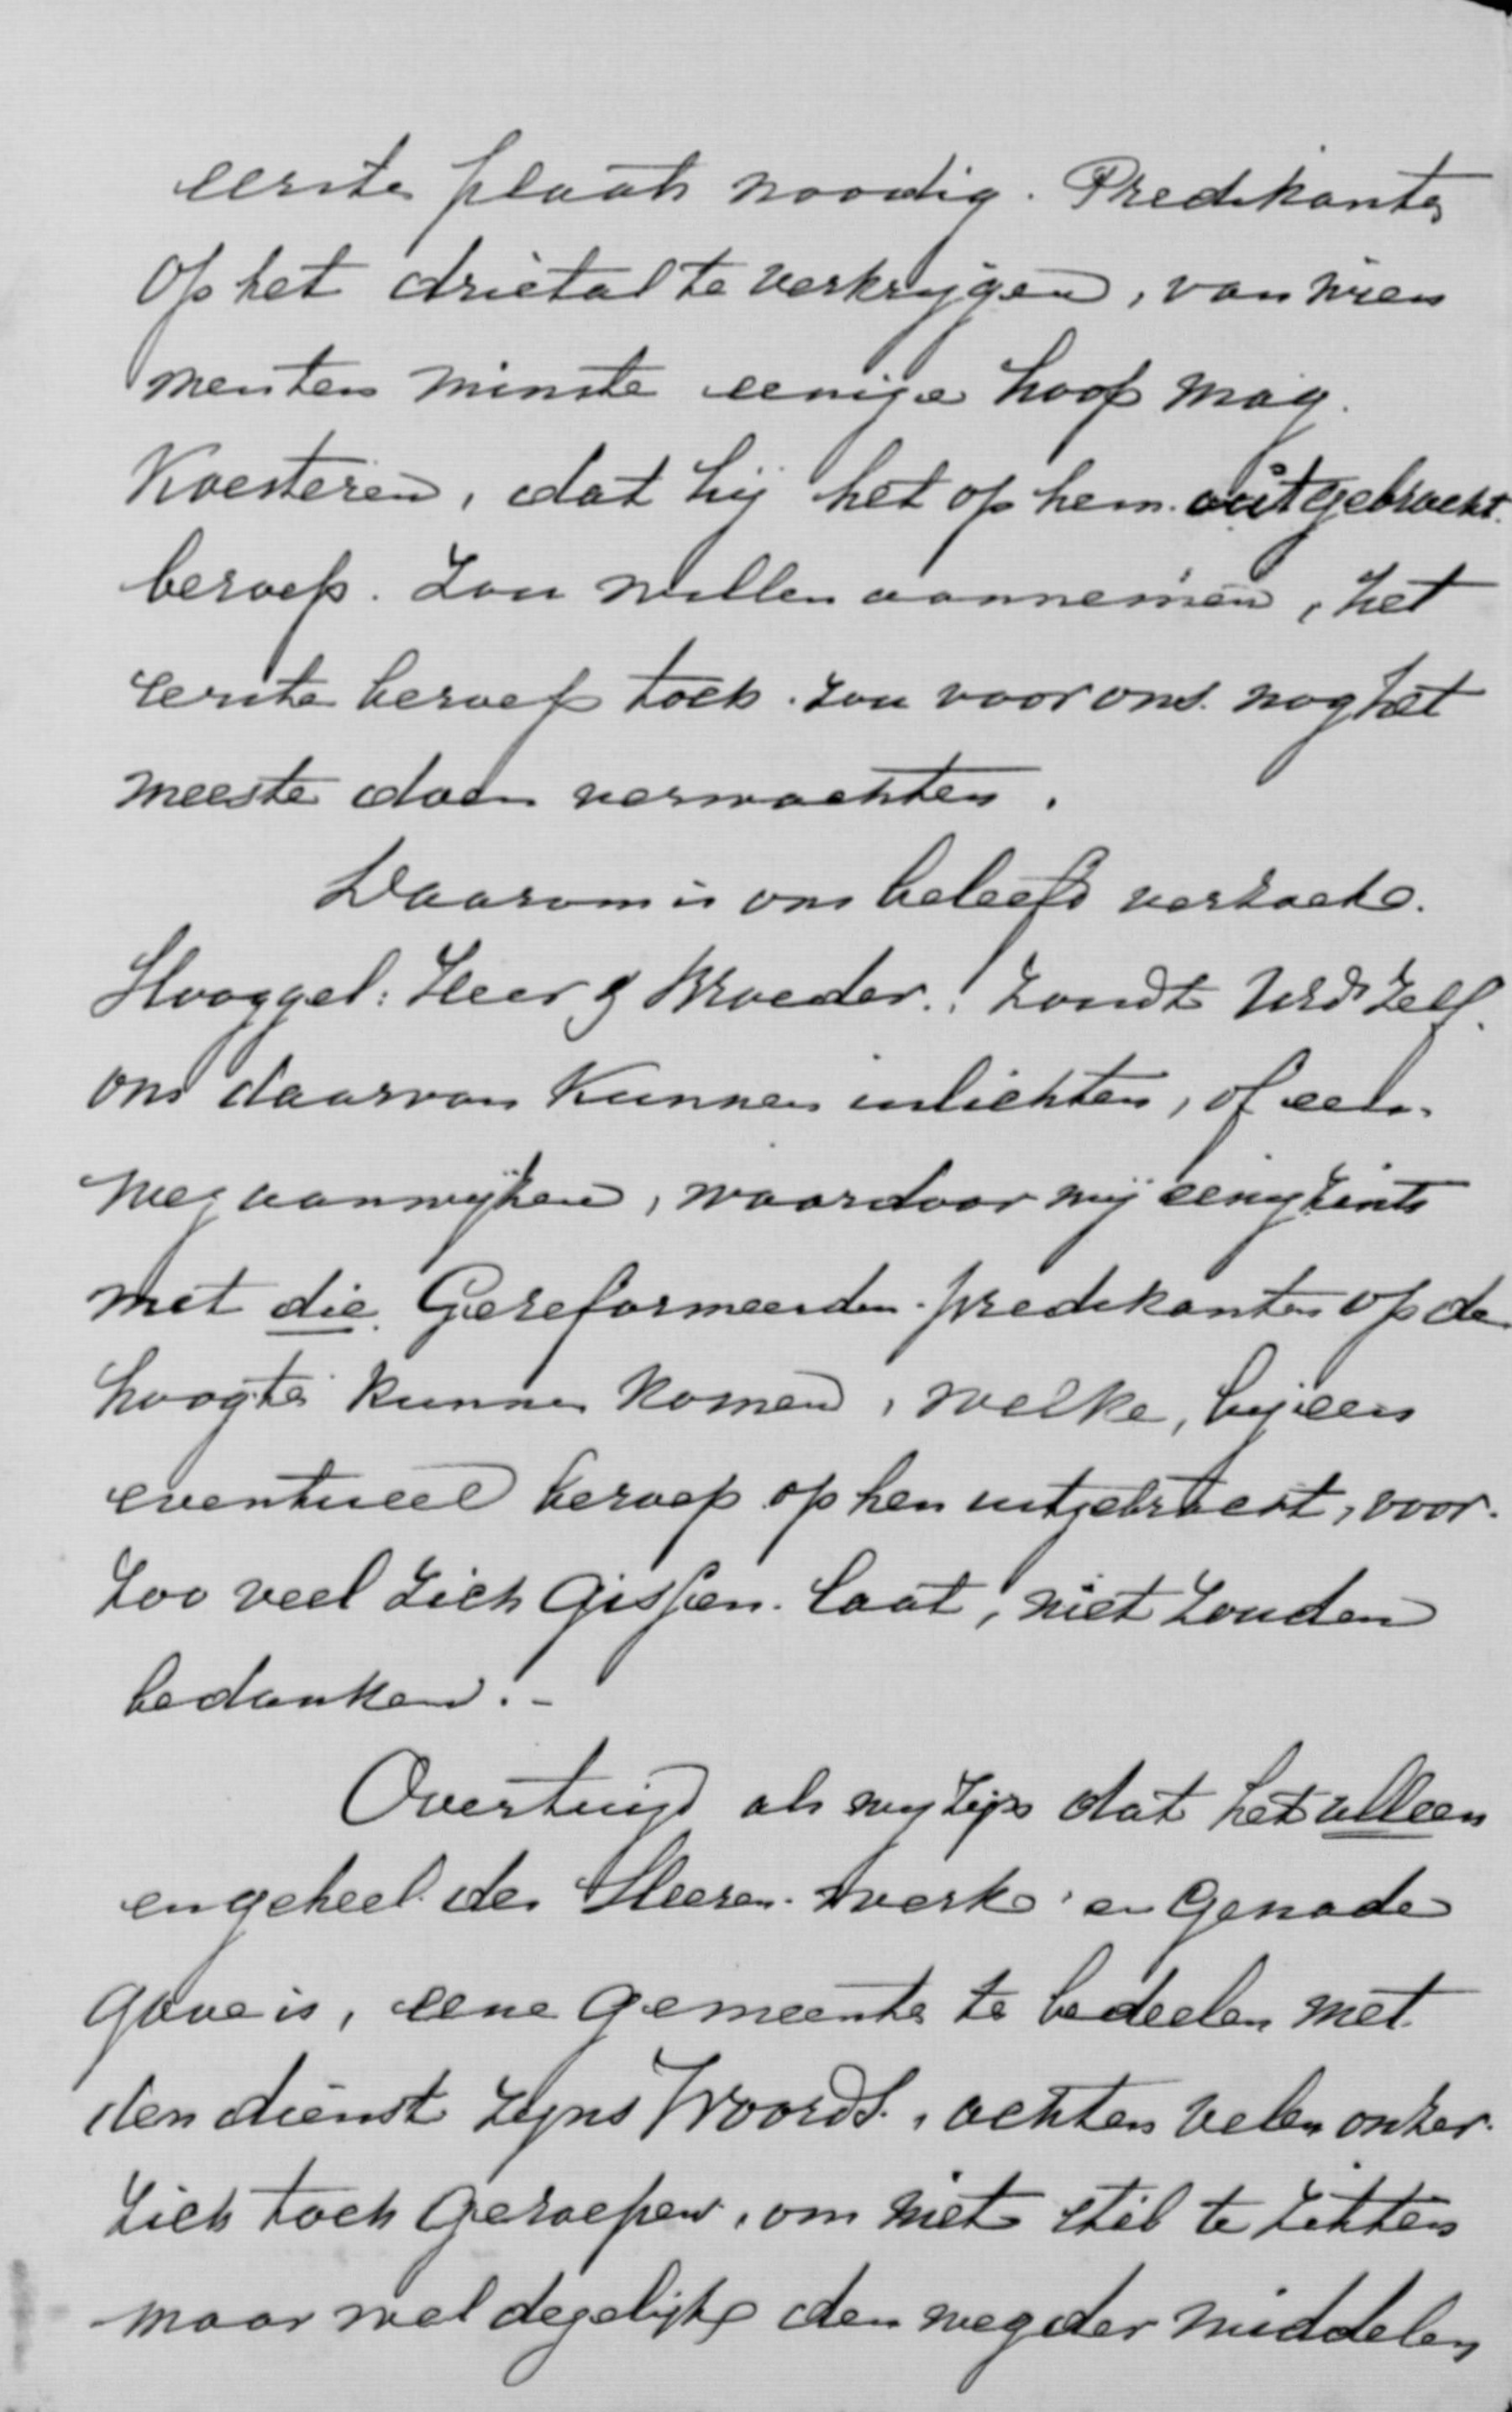 eerste plaats noodig. Predikanten
op het drietal te verkrijgen, van wien
men ten minste eenige hoop mag
Koesteren, dat hij het op hem uitgebracht
beroep. zou willen aannemen, het
eerste beroep toch zou voor ons nog het
meeste doen verwachten.
Daarom is ons beleefd verzoek.
Hooggel: Heer & Broeder! Zoudt UEd zelf
ons daarvan Kunnen inlichten, of een
weg aanwijzen, waardoor wij eenigzints
met die Gereformeerden predikanten op de
hoogte kunnen komen, welke, bij een
eventueel beroep op hen uitgebracht, voor
zoo veel zich gissen laat, niet zouden
bedanken.-
Overtuigd als wij zijn dat het alleen
en geheel des Heeren werk en Genade
gave is, eene gemeente te bedeelen met
den dienst zijns Woords, achten velen onzer
zich toch geroepen, om niet stil te zitten
maar wel degelijk den weg der middelen